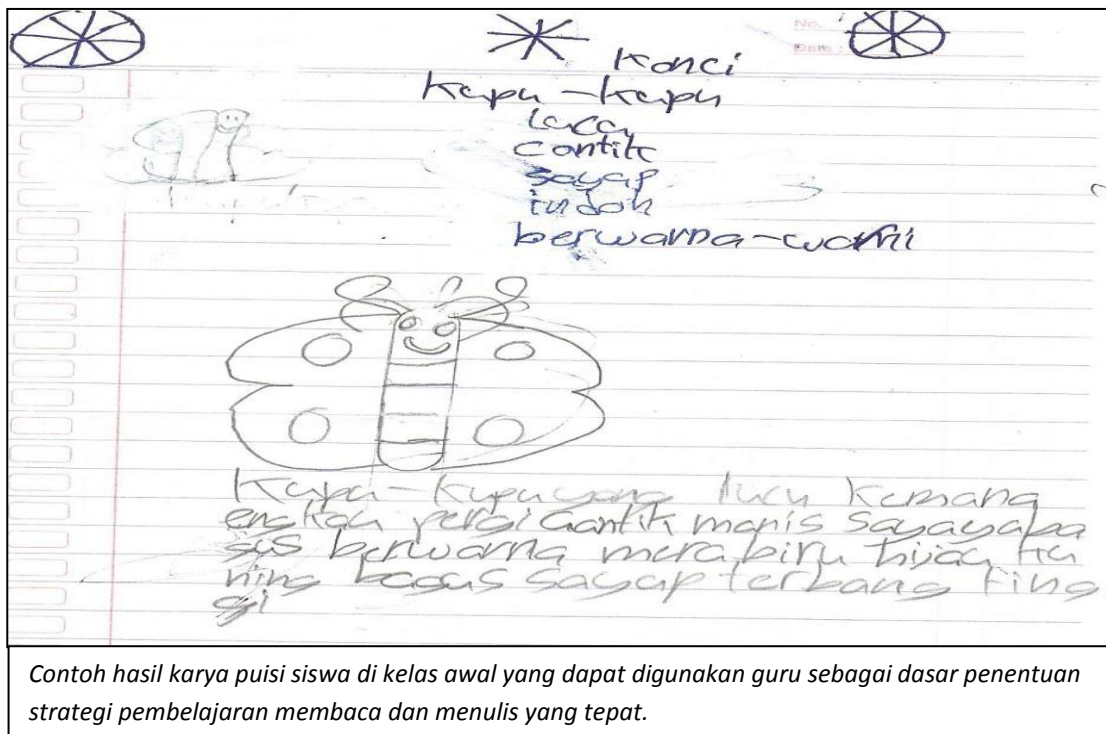 No.
Date :
Konci
Kupu-kupu
lucu
cantik
sayap
indah
berwarna-warni
Kupu-kupu yang lucu Kemana
engkau pergi Cantik manis
berwarna mera biru hijau ku
ning bagus sayap terbang ting
gi
Contoh hasil karya puisi siswa di kelas awal yang dapat digunakan guru sebagai dasar penentuan
strategi pembelajaran membaca dan menulis yang tepat.